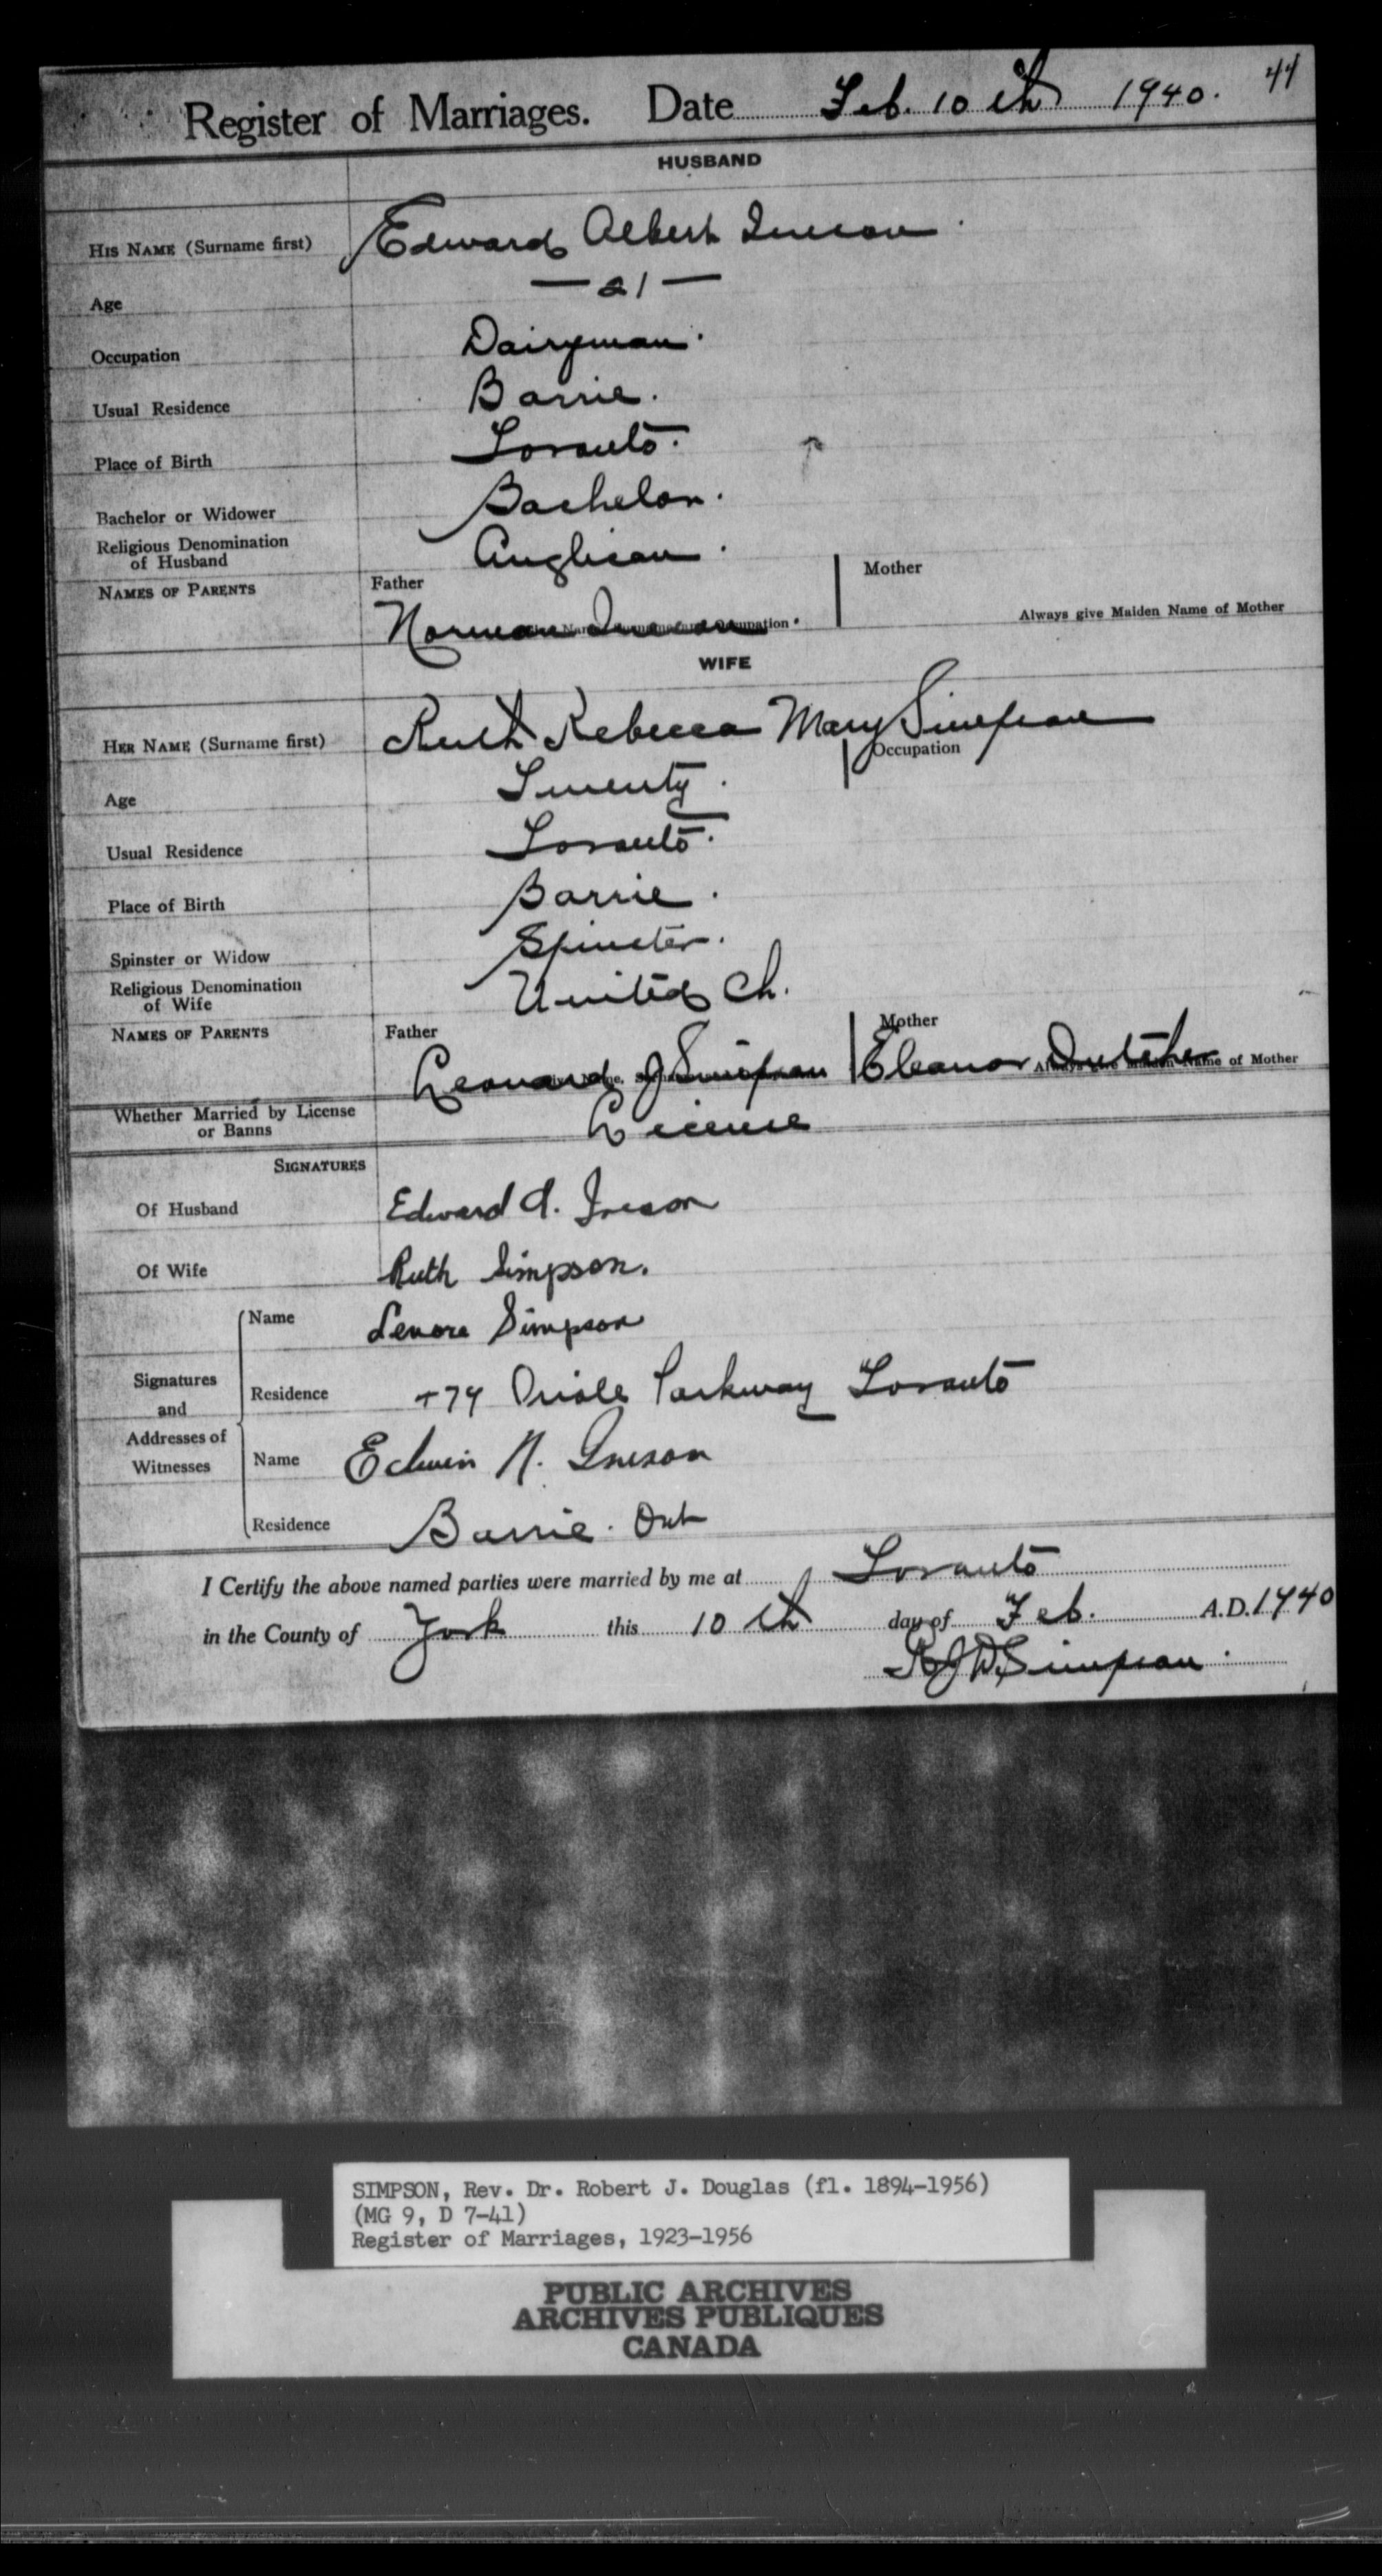 44
Register of Marriages. Date Feb. 10th 1940.
HUSBAND
HIS NAME (Surname first) Edward Albert Ineson
Age — 21 —
Occupation Dairyman.
Usual Residence Barrie.
Place of Birth Toronto.
Bachelor or Widower Bachelor.
Religious Denomination of Husband Anglican.
NAMES OF PARENTS Father Mother
Norman Ineson Always give Maiden Name of Mother
WIFE
HER NAME (Surname first) Ruth Rebecca Mary Simpson
Occupation
Age Twenty.
Usual Residence Toronto.
Place of Birth Barrie.
Spinster or Widow Spinster.
Religious Denomination of Wife United Ch.
NAMES OF PARENTS Father Mother
Leonard J Simpson Eleanor Dutcher Always give Maiden Name of Mother
Whether Married by License or Banns License
SIGNATURES
Of Husband Edward A. Ineson
Of Wife Ruth Simpson.
Name Lenore Simpson
Signatures and Residence 474 Oriole Parkway Toronto
Addresses of Witnesses Name Edwin N. Ineson
Residence Barrie. Ont
I Certify the above named parties were married by me at Toronto
in the County of York this 10th day of Feb. A.D. 1940
R J D. Simpson.
SIMPSON, Rev. Dr. Robert J. Douglas (fl. 1894-1956)
(MG 9, D 7-41)
Register of Marriages, 1923-1956
PUBLIC ARCHIVES
ARCHIVES PUBLIQUES
CANADA